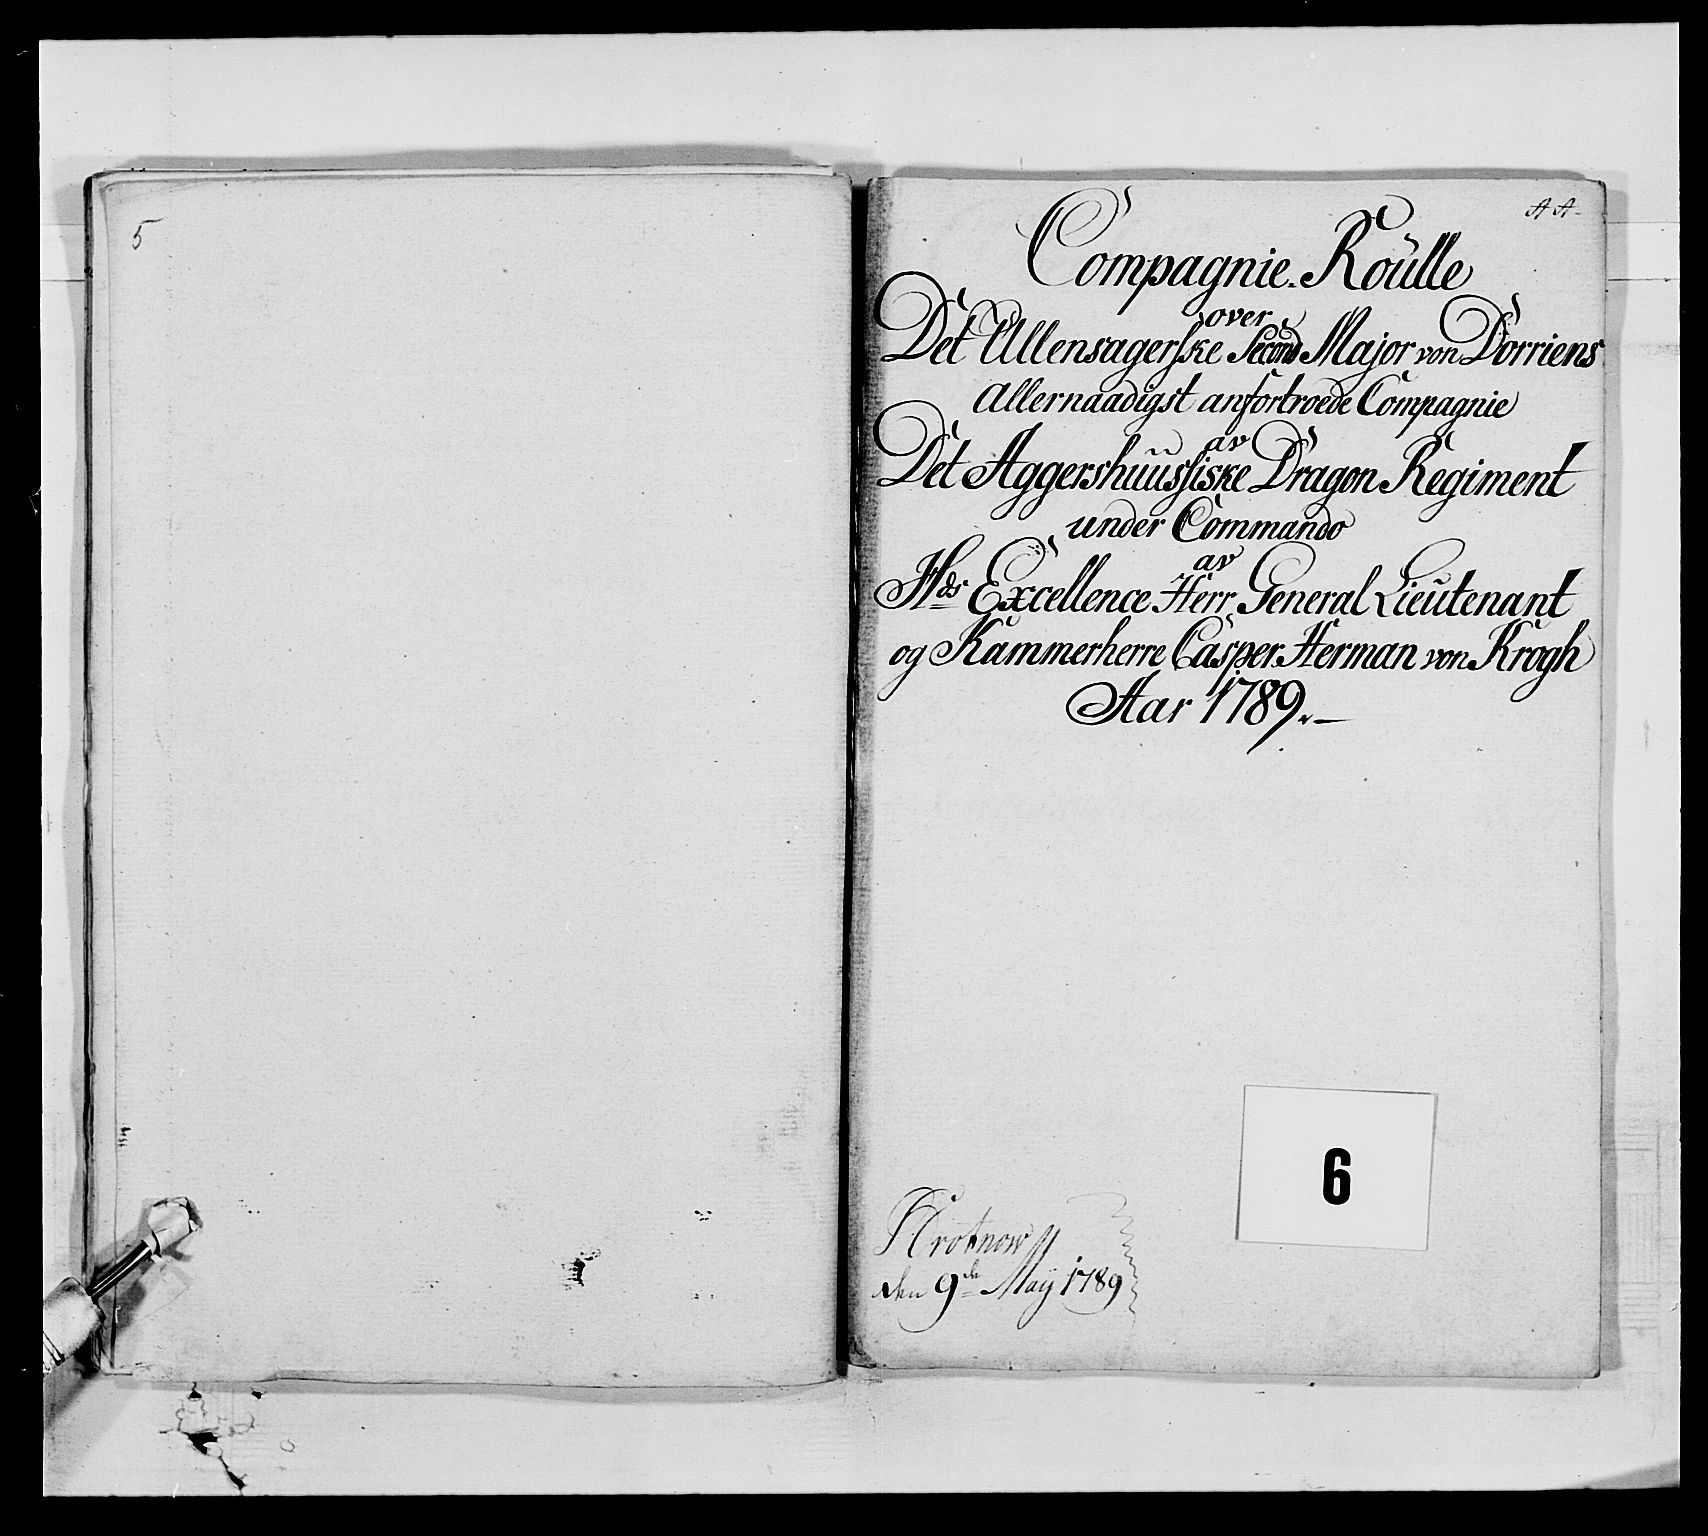 5
A A
Compagnie. Roülle
over
Det Ullensagerske Second Major von Dorriens
Allernaadigst anfortroede Compagnie
av
Det Aggershuusiske Dragon Regiment
under Commando
av
Hds Excellence Herr General Lieutenant
og Kammerherre Casper Herman von Krogh
Aar 1789.-
6
den 9de Maÿ 1789